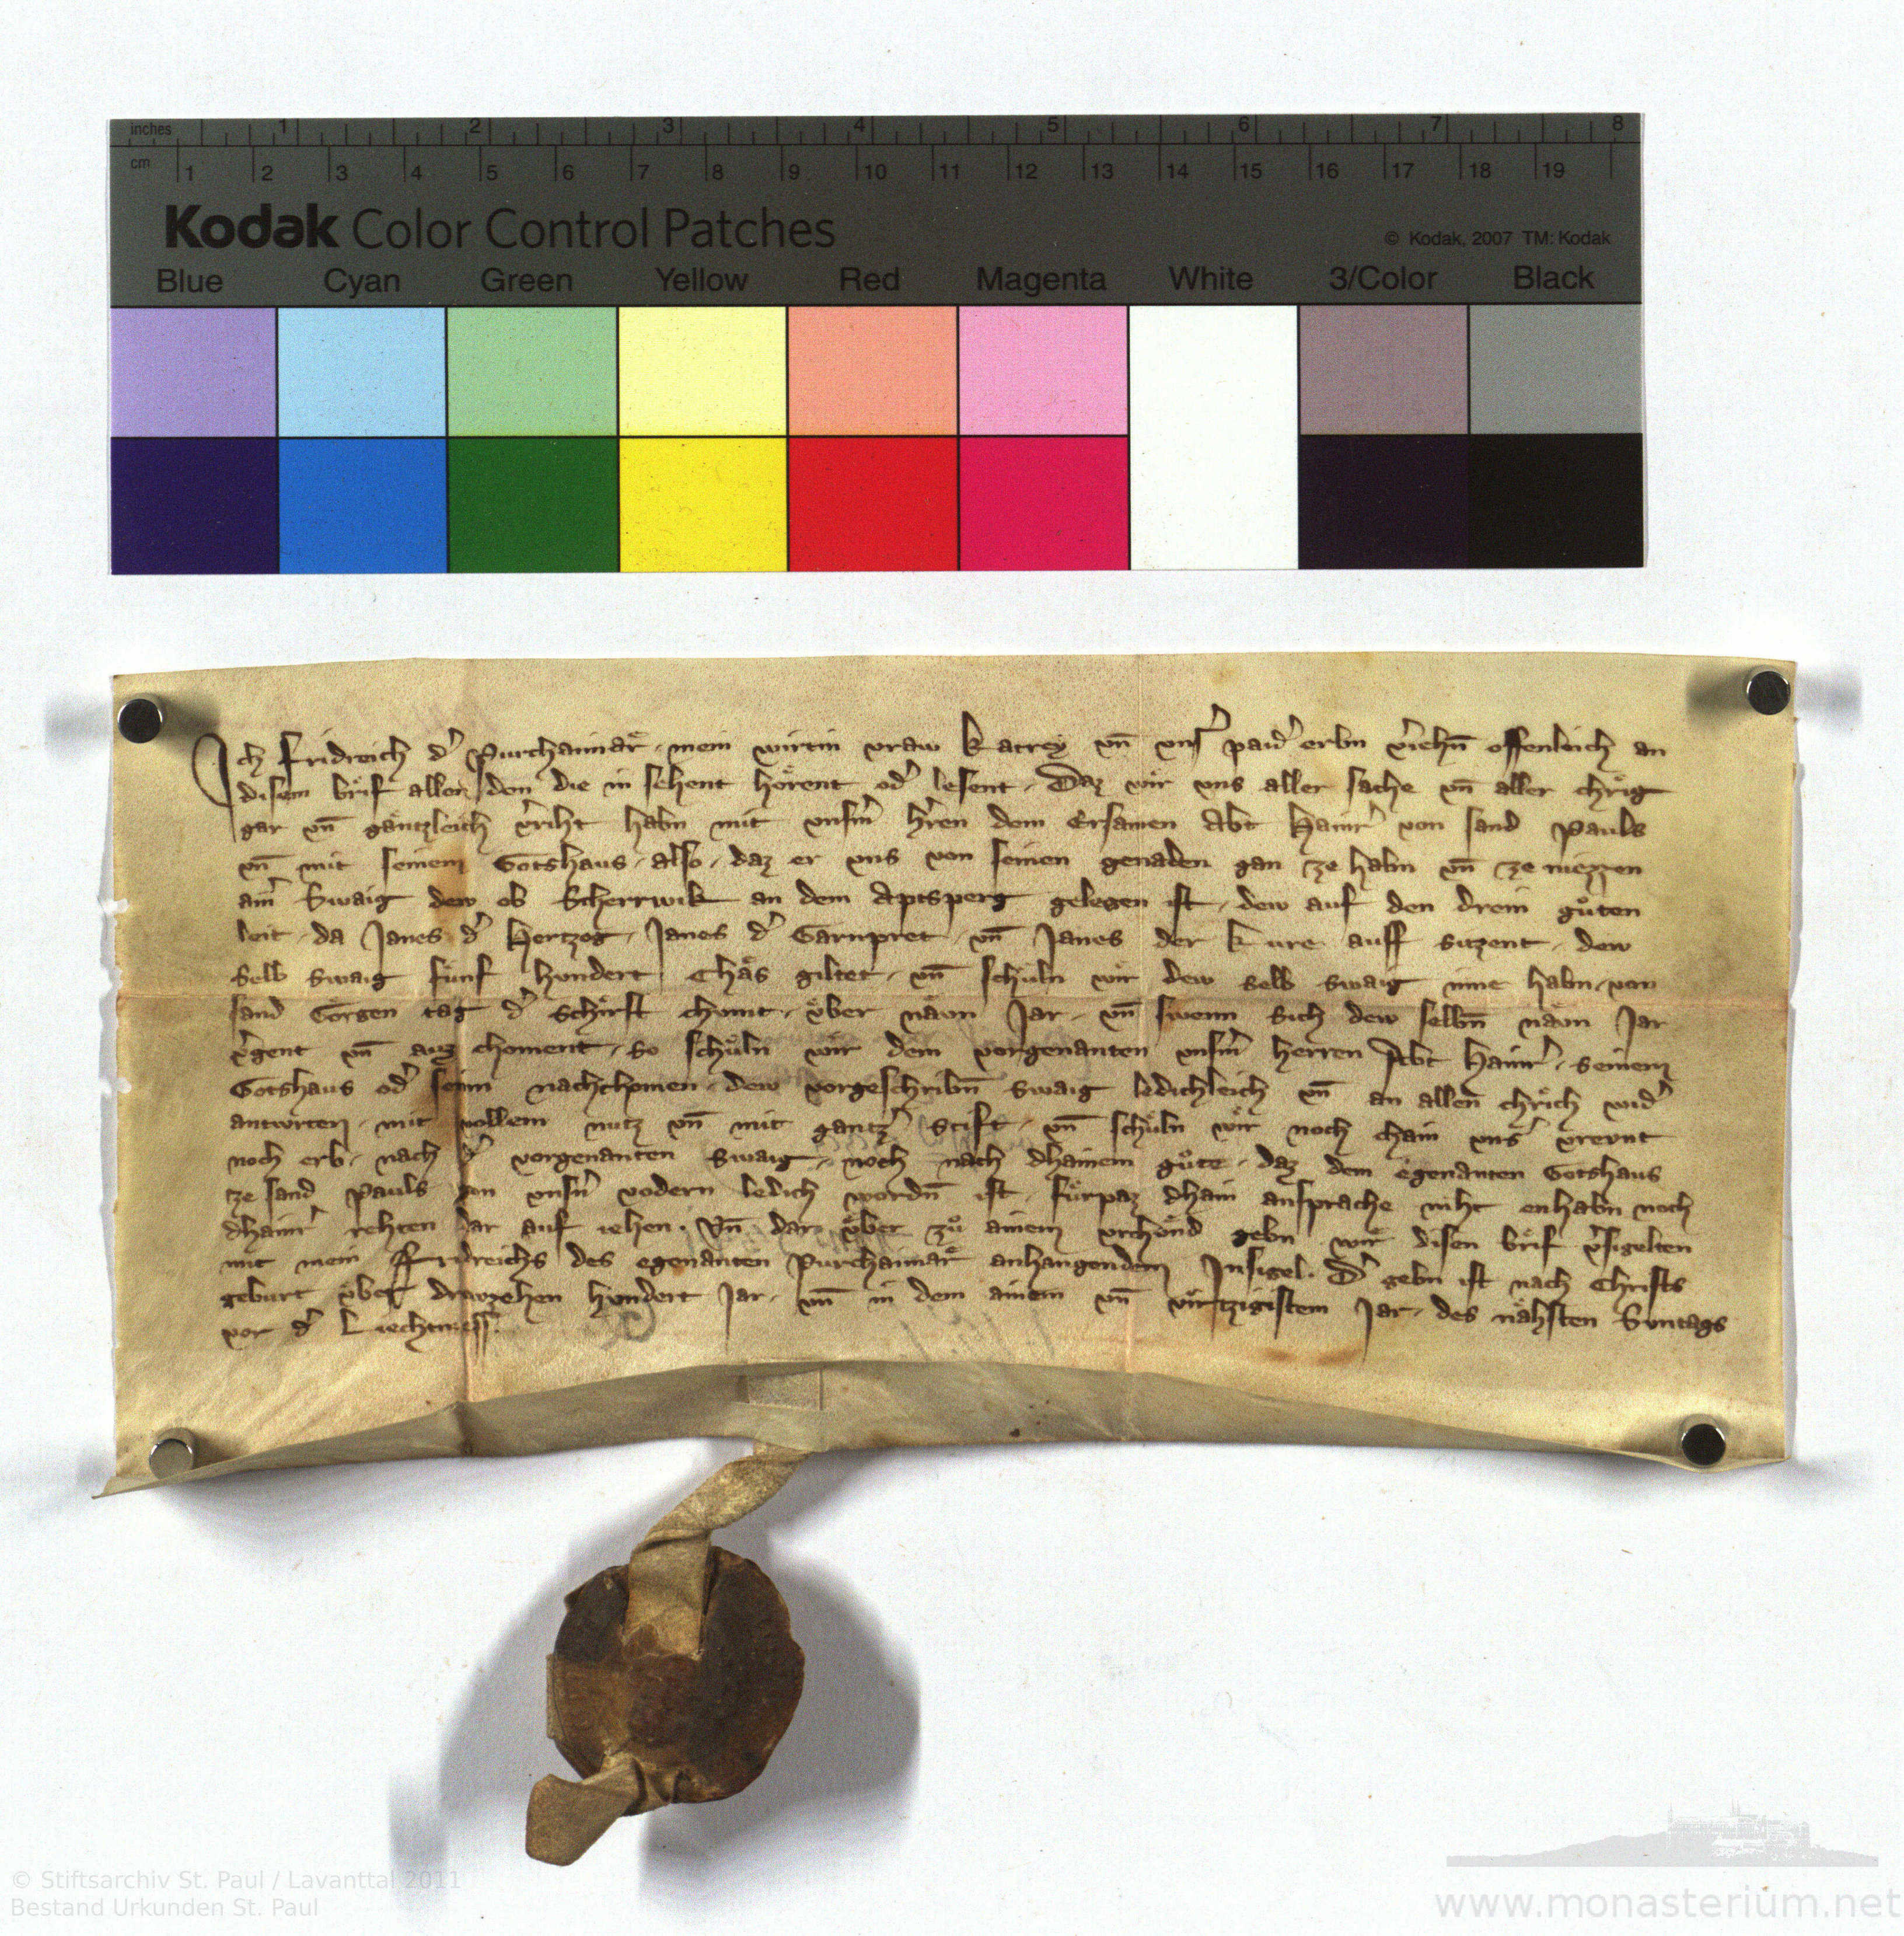 inches 1 2 3 4 5 6 7 8
cm 1 2 3 4 5 6 7 8 9 10 11 12 13 14 15 16 17 18 19
Kodak Color Control Patches © Kodak, 2007 TM: Kodak
Blue Cyan Green Yellow Red Magenta White 3/Color Black
Ich Fridreich d' Purchaimaͤr · mein wirtin vraw Katrey vn̄ vns' paid' erbn v'iehn̄ offenleich an
disem brif allen den die in sehent hoͤrent od' lesent · Daz wir vns aller sache vn̄ aller chrig
gar vn̄ gaͤntzleich v'riht habn mit vnsm̄ h'ren dem Ersamen Abt Hainr' von sand Pauls
vn̄ mit seinem Gotshaus · also · daz er vns von seinen genaden gan ze habn vn̄ ze niezzen
ain' Swaig dew ob Scherrwik an dem Aptsperg gelegen ist · dew auf den drein guͤten
leit · da Janes d' Hertzog · Janes d' Garnpret · vn̄ Janes der Kure auff sitzent · dew
selb swaig fuͤnf hvndert chaͤs giltet · vn̄ schuͤln wir dew selb swaig inne habn · von
sand Goͤrgen tag d' schirst chvmt · vͤber naͤvn Jar · vn̄ swenn sich dew selbn̄ naͤvn Jar
v'gent vn̄ auz choment · so schuͤln wir dem vorgenanten vnsm̄ herren Abt Hainr' · seinem
Gotshaus od' seinn nachchomen · dew vorgeschribn̄ swaig ledichleich vn̄ an allen chrich wid'
antwrten · mit vollem nutz vn̄ mit gantz' stift · vn̄ schuͤln wir noch chain vns' vrevnt
noch erb · nach d' vorgenanten Swaig · noch nach dhainem guͤte · daz dem egenanten Gotshaus
ze sand Pauls von vnsn̄ vodern ledich wordn̄ ist · fuͤrpaz dhain ansprache niht enhabn noch
dhainr' rehten dar auf iehen · Vn̄ dar vͤber zuͦ ainem vrchoͤnd gebn wir disen brif v'sigelten
mit mein Fridreichs des egenanten Purchaimaͤr anhangendem Insigel · D' gebn ist nach Christs
geburt vͤber drewzehen hvndert Jar · vn̄ in dem ainem vn̄ virtzigistem Jar · des naͤhsten Svntags
vor d' Liechtmess ·
© Stiftsarchiv St. Paul / Lavanttal 2011
Bestand Urkunden St. Paul
www.monasterium.net